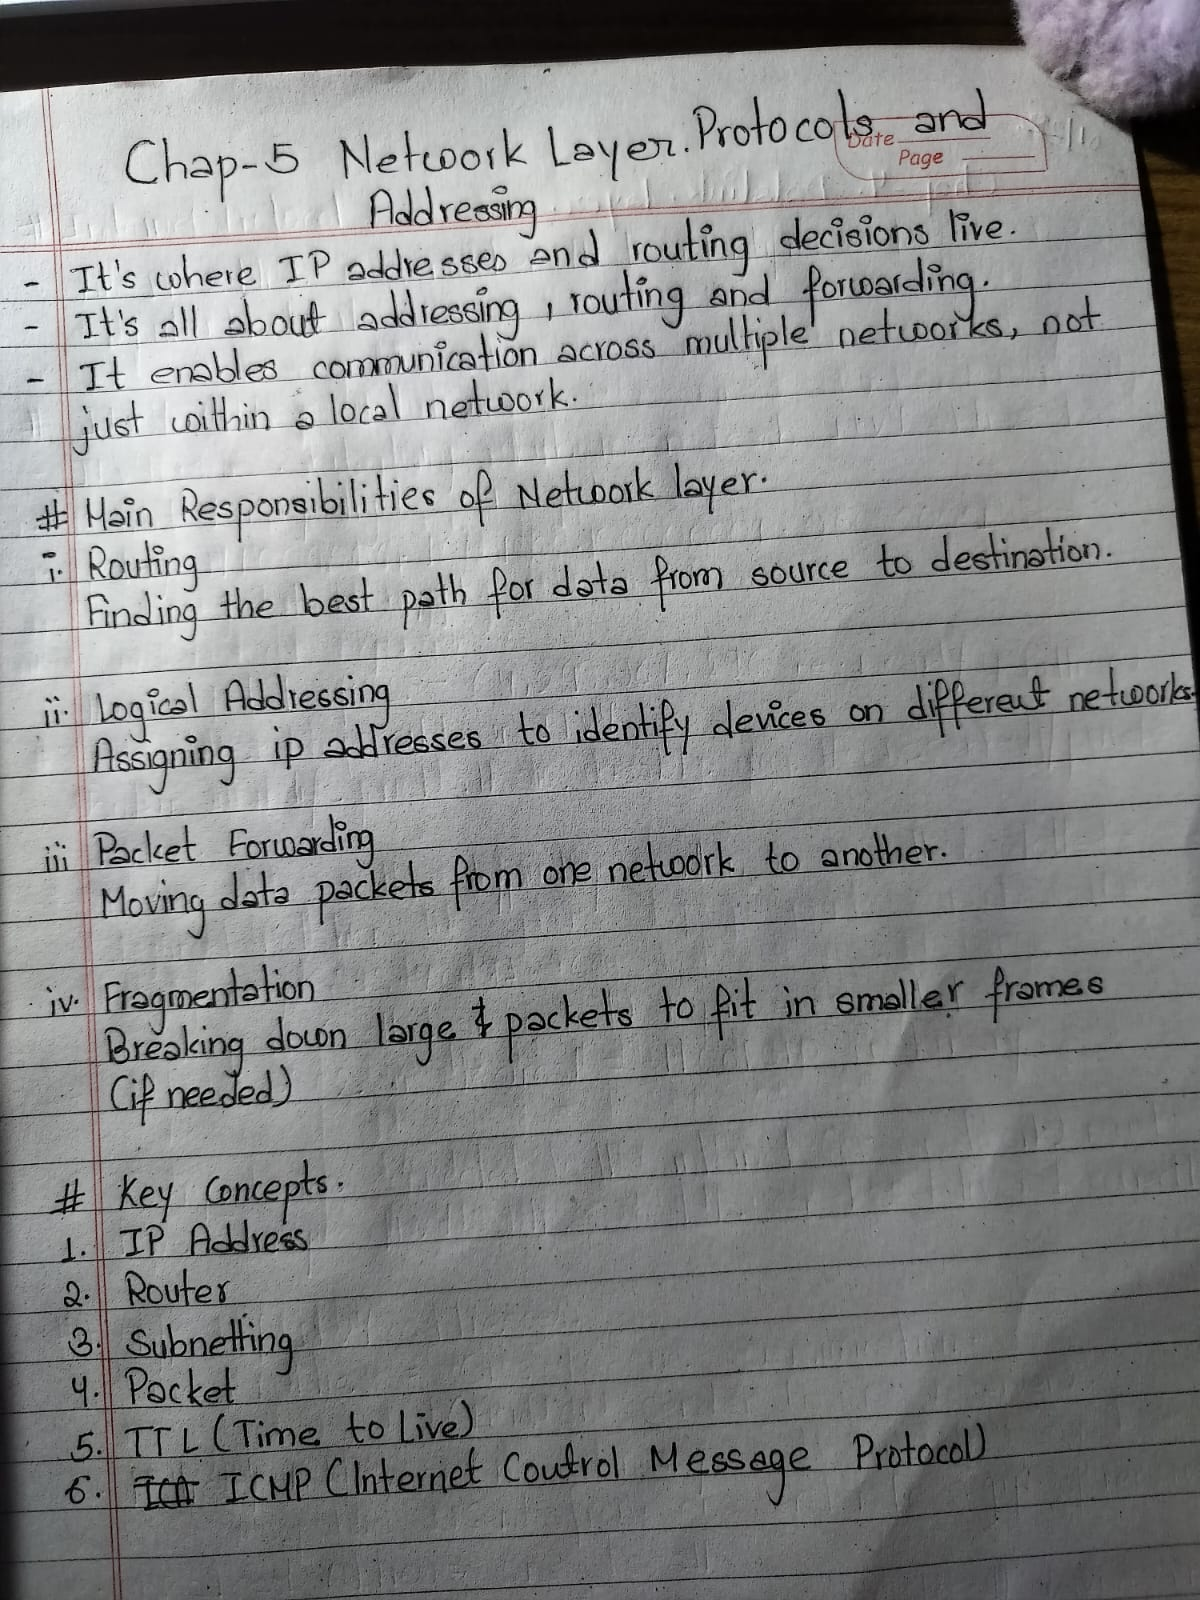 Chap-5 Network Layer. Protocols and
Date
Page
Addressing
- It's where IP addresses and routing decisions live.
- It's all about addressing, routing and forwarding.
- It enables communication across multiple networks, not
just within a local network.
# Main Responsibilities of Network layer.
i. Routing
Finding the best path for data from source to destination.
ii. Logical Addressing
Assigning ip addresses to identify devices on different networks.
iii Packet Forwarding
Moving data packets from one network to another.
iv. Fragmentation
Breaking down large packets to fit in smaller frames
(if needed)
# Key Concepts.
1. IP Address
2. Router
3. Subnetting
4. Packet
5. TTL (Time to Live)
6. ICMP (Internet Control Message Protocol)